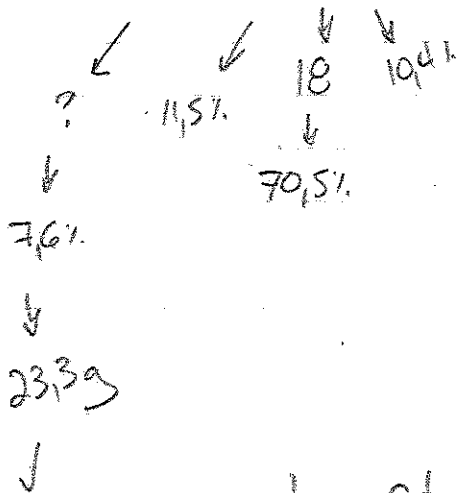 ? 11,5% 18 10,4%
70,5%
7,6%
23,3g